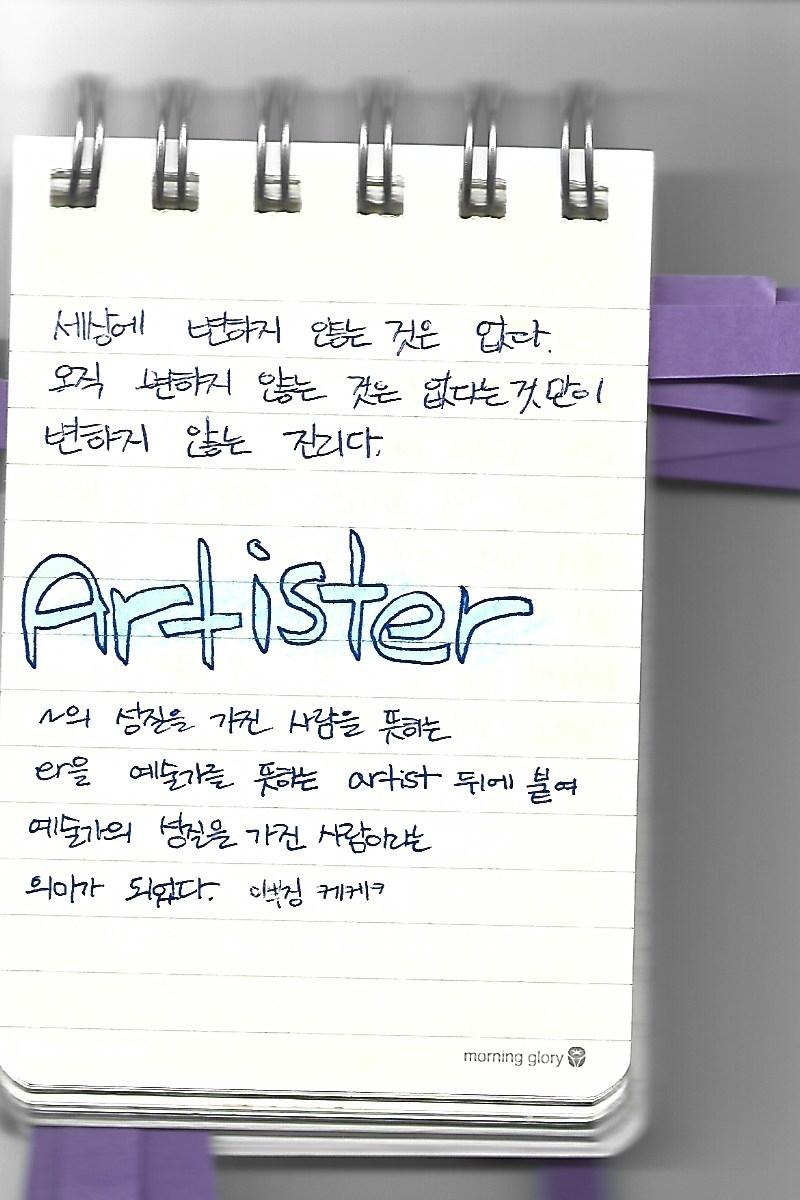 세상에 변하지 않는 것은 없다.
오직 변하지 않는 것은 없다는것만이
변하지 않는 진리다.
Artister
~의 성질을 가진 사람을 뜻하는
er을 예술가를 뜻하는 artist 뒤에 붙여
예술가의 성질을 가진 사람이라는
의미가 되었다. 케케ㅋ
morning glory